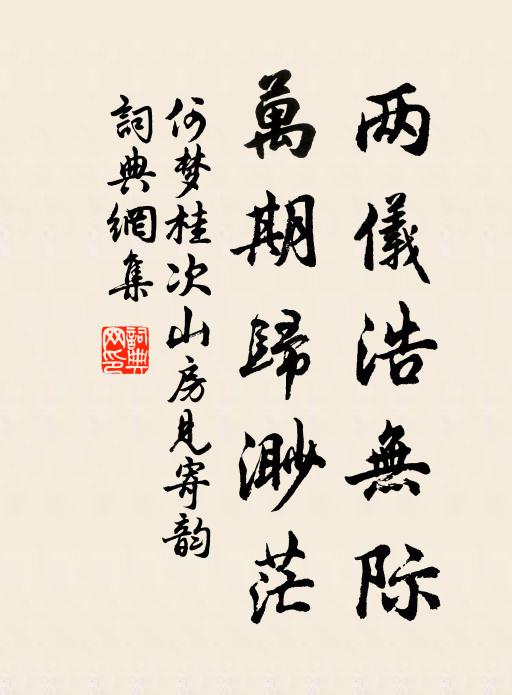 两儀浩無际
萬期歸渺茫
何梦桂次山房見寄韵
詞典網集
詞典網印